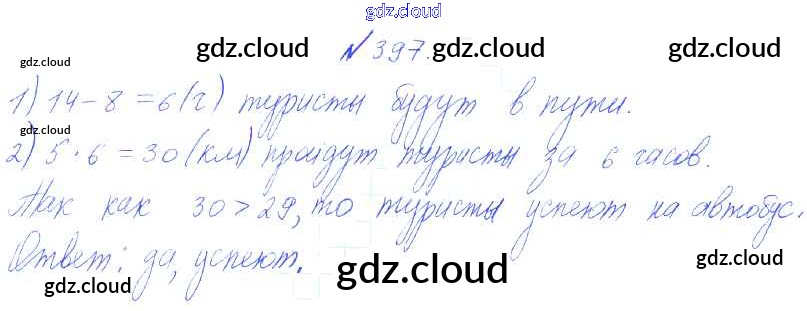 gdz.cloud
gdz.cloud № 397. gdz.cloud gdz.cloud
gdz.cloud
1) 14 - 8 = 6 (ч) туристы будут в пути.
gdz.cloud
2) 5 · 6 = 30 (км) пройдут туристы за 6 часов.
Так как 30 > 29, то туристы успеют на автобус.
Ответ: да, успеют.
gdz.cloud gdz.cloud
gdz.cloud
gdz.cloud